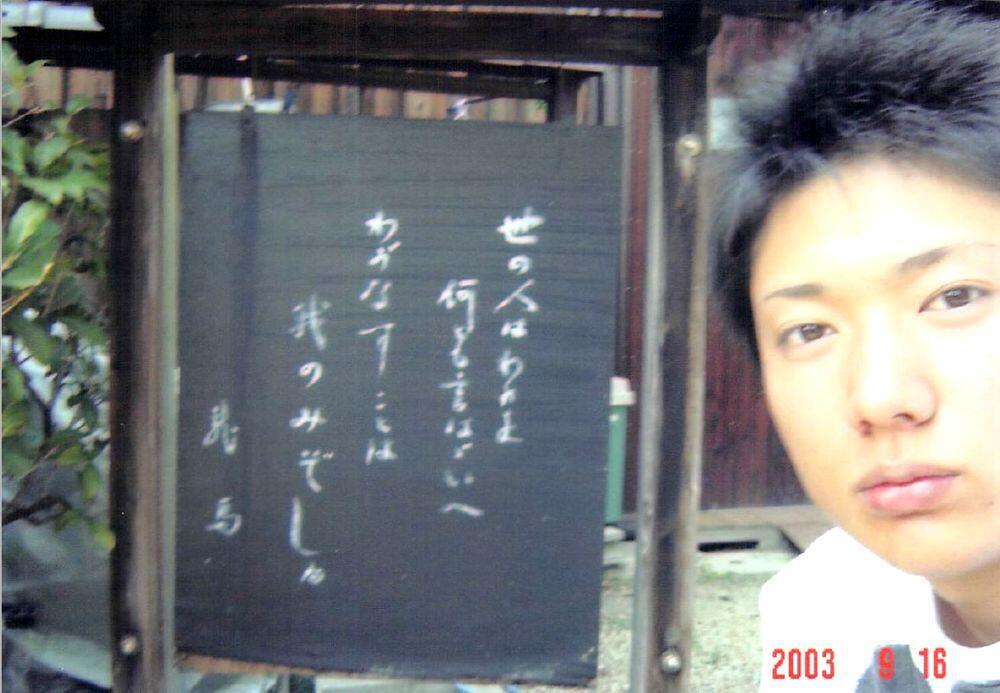 世の人はわれを
何とも言はゞいへ
わがなすことは
我のみぞしる
龍馬
2003 9 16